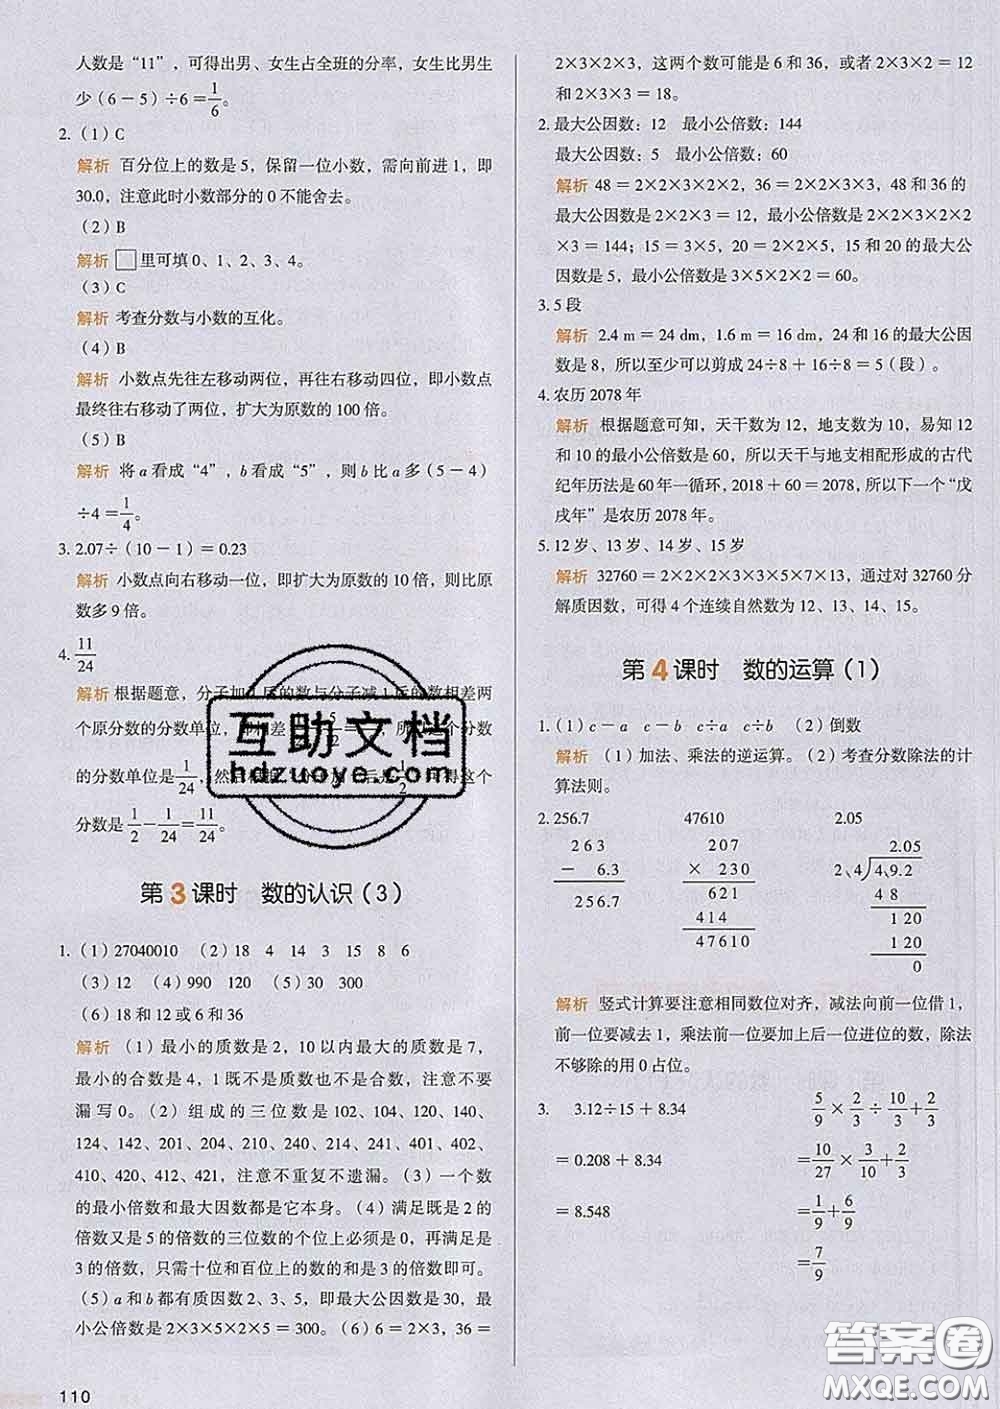 人数是“11”,可得出男、女生占全班的分率,女生比男生
少(6-5)÷6=1/6。
2.(1)C
解析 百分位上的数是5,保留一位小数,需向前进1,即
30.0,注意此时小数部分的0不能舍去。
(2)B
解析 □里可填0、1、2、3、4。
(3)C
解析 考查分数与小数的互化。
(4)B
解析 小数点先往左移动两位,再往右移动四位,即小数点
最终往右移动了两位,扩大为原数的100倍。
(5)B
解析 将a看成“4”,b看成“5”,则b比a多(5-4)
÷4=1/4。
3. 2.07÷(10-1)=0.23
解析 小数点向右移动一位,即扩大为原数的10倍,则比原
数多9倍。
4. 11/24
解析 根据题意,分子加1后的数与分子减1后的数相差两
个原分数的分数单位,
的分数单位是1/24,
分数是1/2-1/24=11/24。
第3课时 数的认识(3)
1.(1)27040010 (2)18 4 14 3 15 8 6
(3)12 (4)990 120 (5)30 300
(6)18和12或6和36
解析 (1)最小的质数是2,10以内最大的质数是7,
最小的合数是4,1既不是质数也不是合数,注意不要
漏写0。(2)组成的三位数是102、104、120、140、
124、142、201、204、210、214、240、241、401、402、
410、420、412、421,注意不重复不遗漏。(3)一个数
的最小倍数和最大因数都是它本身。(4)满足既是2的
倍数又是5的倍数的三位数的个位上必须是0,再满足是
3的倍数,只需十位和百位上的数的和是3的倍数即可。
(5)a和b都有质因数2、3、5,即最大公因数是30,最
小公倍数是2×3×5×2×5=300。(6)6=2×3,36=
110
2×3×2×3,这两个数可能是6和36,或者2×3×2=12
和2×3×3=18。
2. 最大公因数:12 最小公倍数:144
最大公因数:5 最小公倍数:60
解析 48=2×2×3×2×2,36=2×2×3×3,48和36的
最大公因数是2×2×3=12,最小公倍数是2×2×3×2×2
×3=144;15=3×5,20=2×2×5,15和20的最大公
因数是5,最小公倍数是3×5×2×2=60。
3. 5段
解析 2.4 m=24 dm,1.6 m=16 dm,24和16的最大公因
数是8,所以至少可以剪成24÷8+16÷8=5(段)。
4. 农历2078年
解析 根据题意可知,天干数为12,地支数为10,易知12
和10的最小公倍数是60,所以天干与地支相配形成的古代
纪年历法是60年一循环,2018+60=2078,所以下一个“戊
戌年”是农历2078年。
5. 12岁、13岁、14岁、15岁
解析 32760=2×2×2×3×3×5×7×13,通过对32760分
解质因数,可得4个连续自然数为12、13、14、15。
第4课时 数的运算(1)
1.(1)c-a c-b c÷a c÷b (2)倒数
解析 (1)加法、乘法的逆运算。(2)考查分数除法的计
算法则。
2. 256.7 47610 2.05
263 207 2.05
- 6.3 × 230 2.4 4.9.2
256.7 621 48
414 120
47610 120
0
解析 竖式计算要注意相同数位对齐,减法向前一位借1,
前一位要减去1,乘法前一位要加上后一位进位的数,除法
不够除的用0占位。
3. 3.12÷15+8.34 5/9×2/3÷10/3+2/3
=0.208+8.34 =10/27×3/10+2/3
=8.548 =1/9+6/9
=7/9
互助文档
hdzuoye.com
答案圈
MXQE.COM